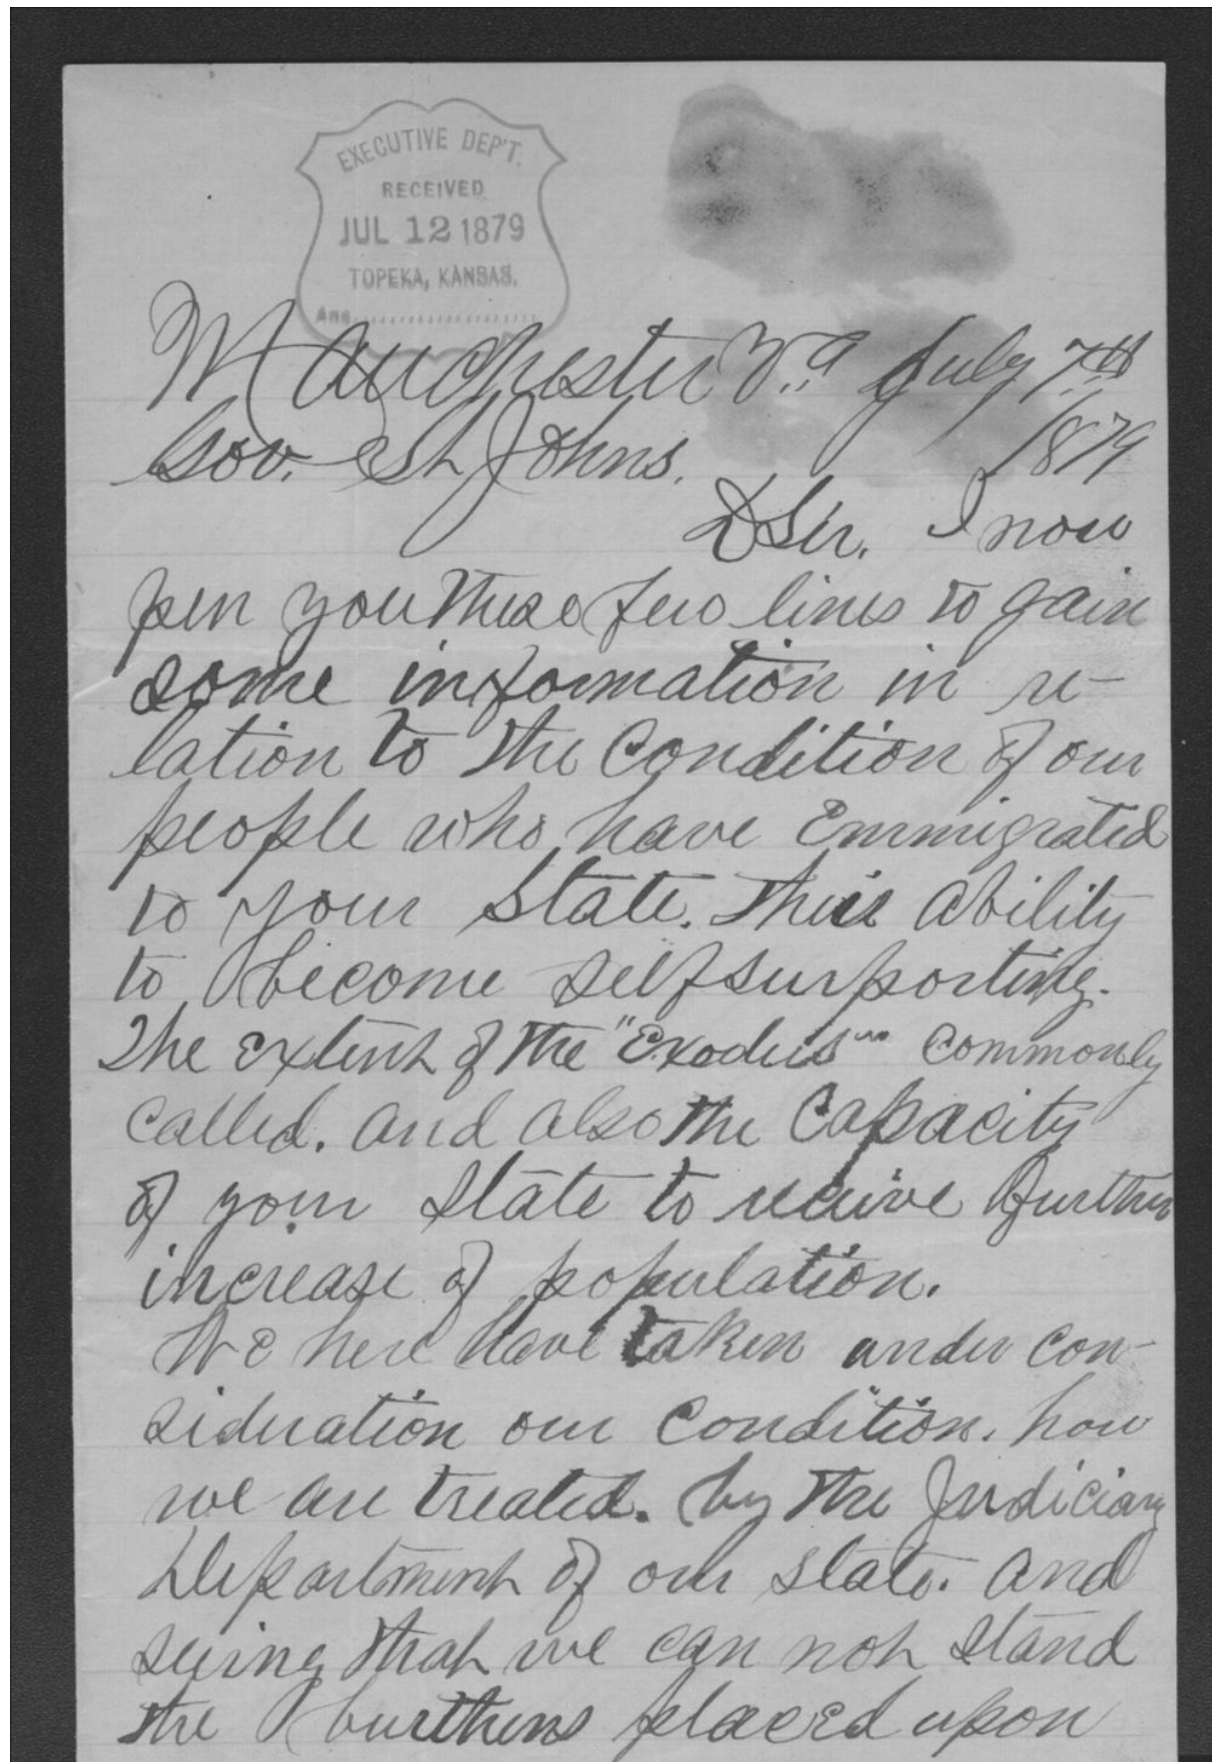 EXECUTIVE DEP'T.
RECEIVED
JUL 12 1879
TOPEKA, KANSAS.
Ans
Manchester Va July 7th
1879
Gov. St Johns.
D Sir. I now
pen you these few lines to gain
some information in re-
lation to the Condition of our
people who have Emmigrated
to your State. their ability
to become self surporting.
The extent of the "Exodus" commonly
called. and also the Capacity
of your State to receive further
increase of population.
We here have taken under con-
sideration our Condition. how
we are treated. by the Judiciary
Department of our state. and
seeing that we can not stand
the burthens placed upon